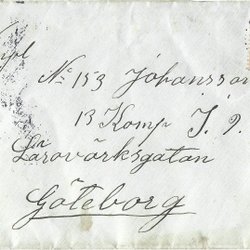 No 153 Johansson
13 Komp I. 9
Lärovärksgatan
Göteborg